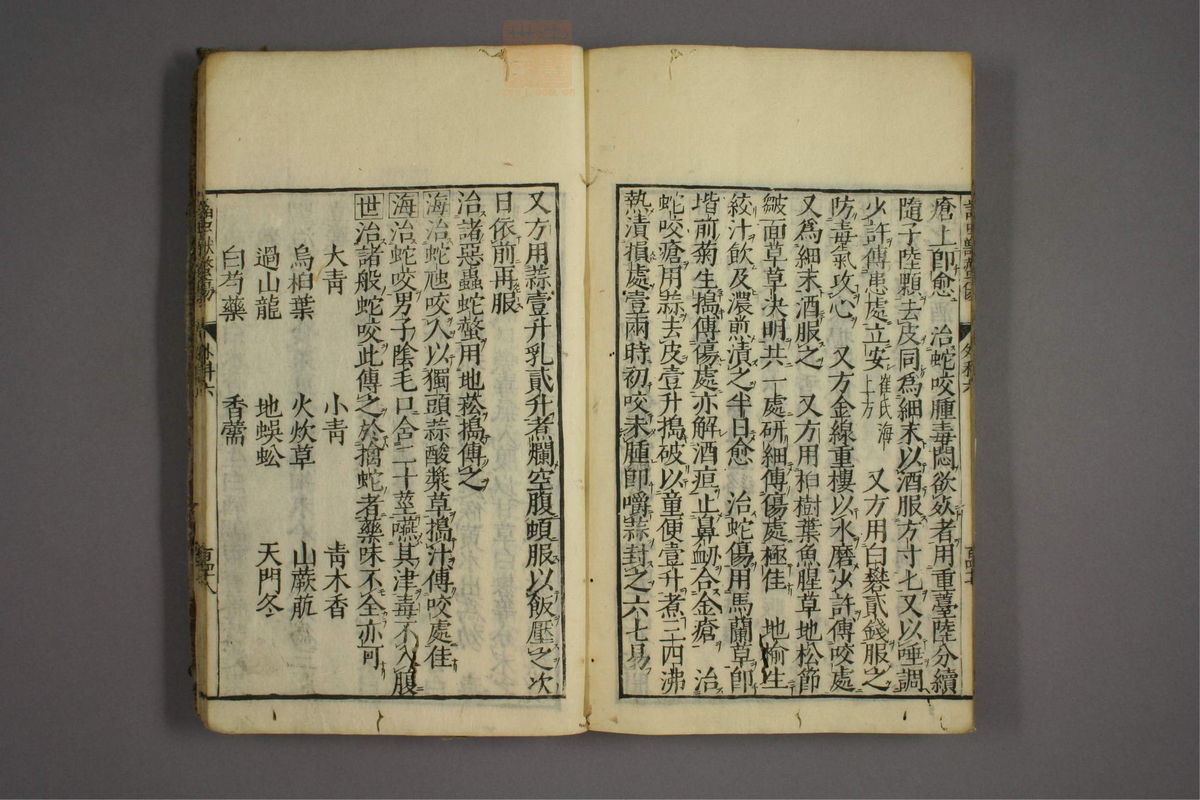 瘡上卽愈　治蛇咬腫毒悶欲𣦸者用重薹陸分續
隨子陸顆去皮同為細末以酒服方寸七又以唾調
少許傅患處立安崔氏海上方　又方用白礬貳錢服之
防毒氣攻心　又方金線重樓以水磨少許傅咬處
又為細末酒服之　又方用桕樹葉魚腥草地松節
皺面草草决明共一處研細傅傷處極佳　地榆生
絞汁飲及濃煎漬之半日愈　治蛇傷用馬蘭草卽
堦前菊生搗傅傷處亦解酒疸止鼻衂合金瘡　治
蛇咬瘡用蒜去皮壹升搗破以童便壹升煮三四沸
熱漬損處壹兩時初咬未腫卽嚼蒜封之六七易
又方用蒜壹升乳貳升煮爛空腹頓服以飯壓之次
日依前再服
治諸惡蟲蛇螫用地菘搗傅之
海治蛇虺咬人以獨頭蒜酸漿草搗汁傅咬處佳
海治蛇咬男子陰毛口含二十莖嚥其津毒不入腹
世治諸般蛇咬此傅之於擒蛇者藥味不全亦可
大靑　小靑　靑木香
烏桕葉　火炊草　山蕨萮
過山龍　地蜈蚣　天門冬
白芍藥　香薷